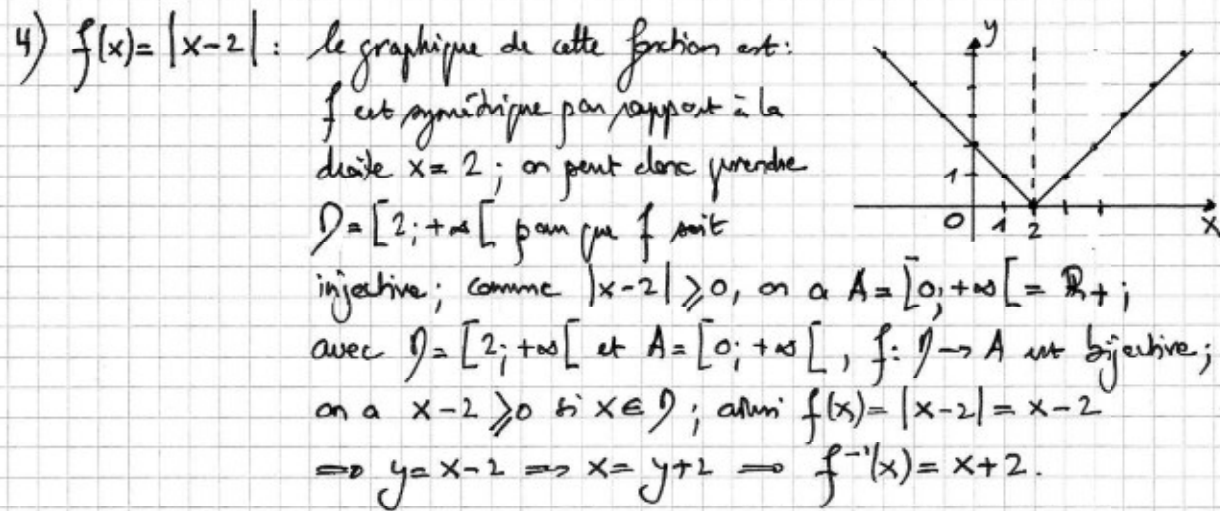 4) f(x) = |x-2| : le graphique de cette fonction est :
f est symétrique par rapport à la
droite x = 2 ; on peut donc prendre
D = [2; +∞[ pour que f soit
injective ; comme |x-2| ⩾ 0, on a A = [0; +∞[ = ℝ+ ;
avec D = [2; +∞[ et A = [0; +∞[, f: D → A est bijective ;
on a x-2 ⩾ 0 si x ∈ D ; ainsi f(x) = |x-2| = x-2
⇒ y = x-2 ⇒ x = y+2 ⇒ f⁻¹(x) = x+2.
y
1
0 1 2 x